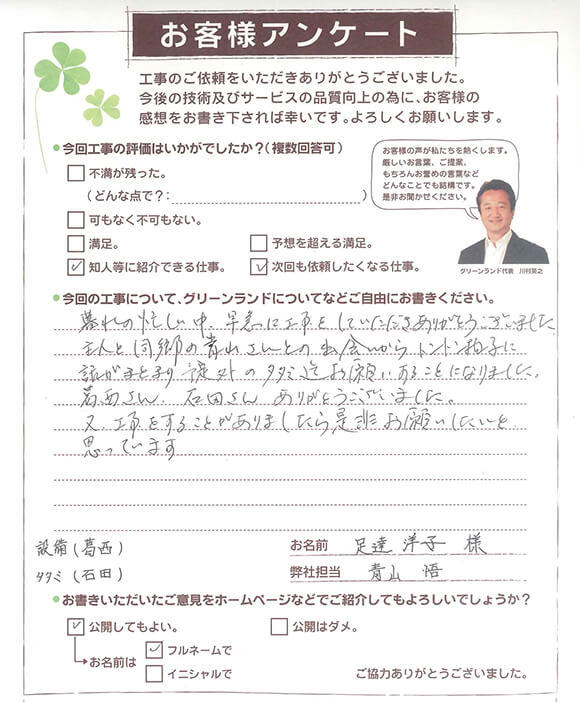 お客様アンケート
工事のご依頼をいただきありがとうございました。
今後の技術及びサービスの品質向上の為に、お客様の
感想をお書き下されば幸いです。よろしくお願いします。
●今回工事の評価はいかがでしたか?(複数回答可)
不満が残った。
(どんな点で?: )
可もなく不可もない。
満足。
予想を超える満足。
知人等に紹介できる仕事。
次回も依頼したくなる仕事。
お客様の声が私たちを熱くします。
厳しいお言葉、ご提案、
もちろんお誉めの言葉など
どんなことでも結構です。
是非お聞かせください。
グリーンランド代表 川村英之
●今回の工事について、グリーンランドについてなどご自由にお書きください。
暮れの忙しい中、早急に工事をしていただきありがとうございました
主人と同郷の青山さんとの出会いからトントン拍子に
話がまとまり予定外のタタミ迄お願いすることになりました。
葛西さん、石田さんありがとうございました。
又、工事をすることがありましたら是非お願いしたいと
思っています
設備(葛西)
タタミ(石田)
お名前 足達 洋子 様
弊社担当 青山 悟
●お書きいただいたご意見をホームページなどでご紹介してもよろしいでしょうか?
公開してもよい。
公開はダメ。
お名前は
フルネームで
イニシャルで
ご協力ありがとうございました。